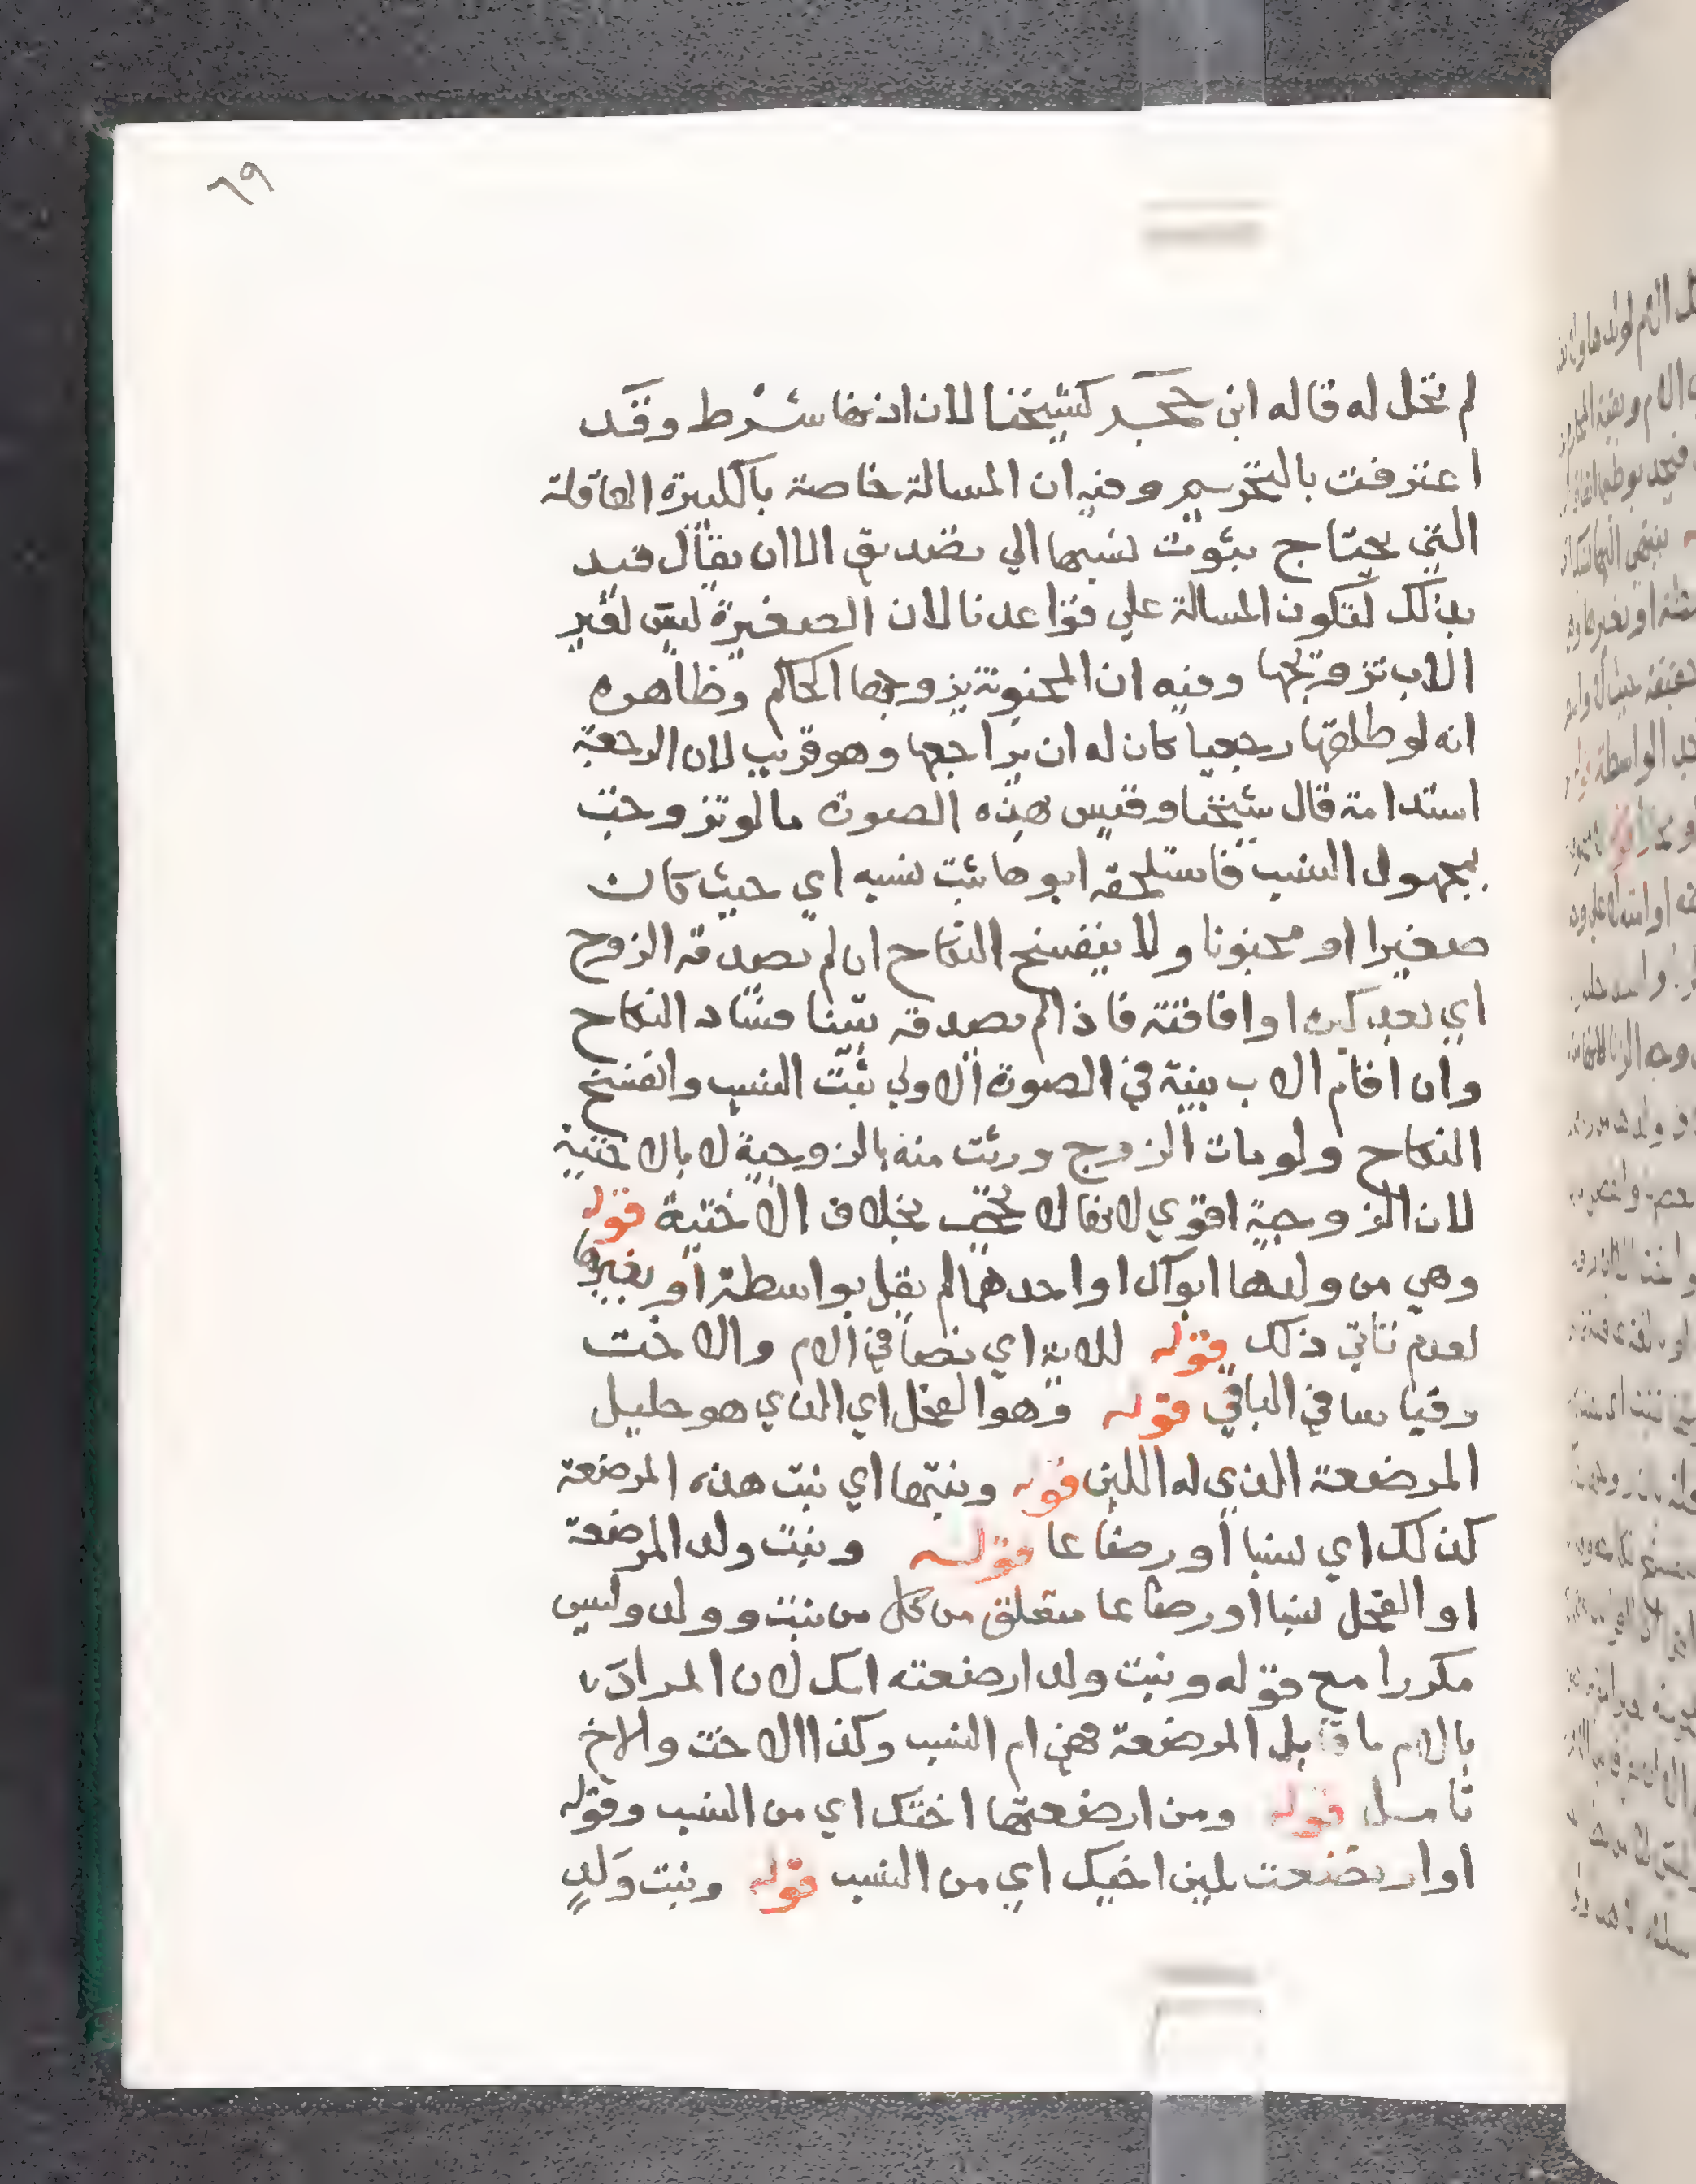 ٦٩
لم تحل له قاله ابن حجر كشيخنا لان اذنها شرط وقد
اعترفت بالتحريم وفيه ان المسالة خاصة بالكبيرة العاقلة
التي يحتاج ثبوت نسبها الي تصديق الا ان يقال قيد
بذلك لتكون المسالة علي قواعدنا لان الصغيرة ليس لغير
الاب تزويجها وفيه ان المجنونة يزوجها الحاكم وظاهره
انه لو طلقها رجعيا كان له ان يراجعها وهو قريب لان الرجعة
استدامة قال شيخنا وقيس هذه الصورة ما لو تزوجت
بمجهول النسب فاستلحقه ابوها ثبت نسبه اي حيث كان
صغيرا او مجنونا ولا ينفسخ النكاح ان لم يصدقه الزوج
اي بعد كبره او افاقته فاذا لم يصدقه بينا فساد النكاح
وان اقام الاب بينة في الصورة الاولي ثبت النسب وانفسخ
النكاح ولو مات الزوج ورثت منه بالزوجية لا بالاختية
لان الزوجية اقوي لانها لا تحجب بخلاف الاختية قوله
وهي من ولدها ابواك او احدهما لم يقل بواسطة او بغيرها
لعدم تاتي ذلك قوله للاية اي نصا في الام والاخت
وقياسا في الباقي قوله وهو الفحل اي الذي هو حليل
المرضعة الذي له اللبن قوله وبنتها اي بنت هذه المرضعة
كذلك اي نسبا او رضاعا قوله وبنت ولد المرضعة
او الفحل نسبا او رضاعا متعلق من كل من بنت وولد وليس
مكررا مع قوله وبنت ولد ارضعته امك لان المراد
بالام ما قابل المرضعة فهي ام النسب وكذا الاخت والاخ
تامل قوله ومن ارضعتها اختك اي من النسب وقوله
او ارتضعت بلبن اخيك اي من النسب قوله وبنت ولد